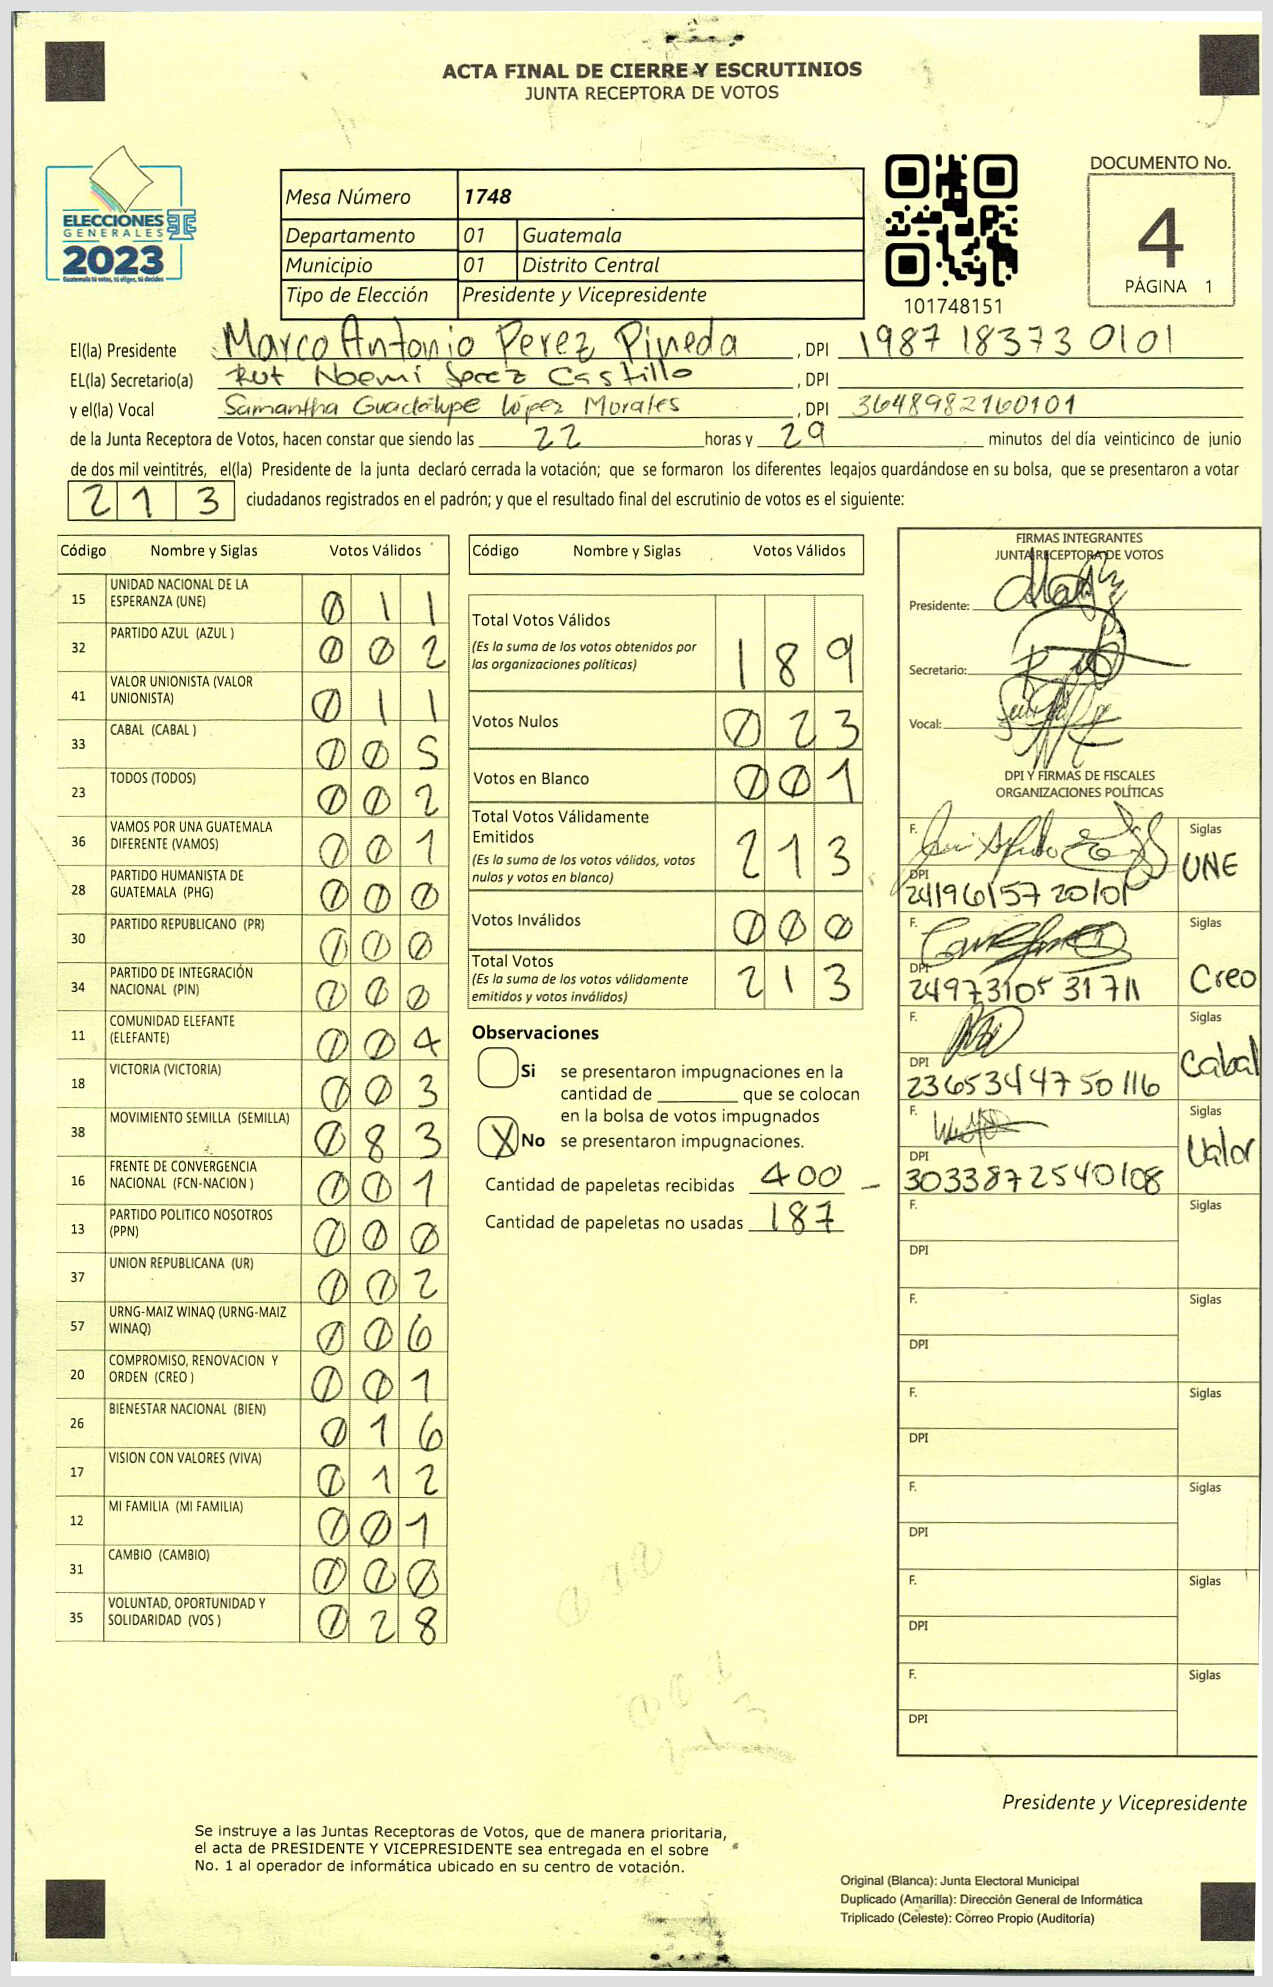 ACTA FINAL DE CIERRE Y ESCRUTINIOS
JUNTA RECEPTORA DE VOTOS
ELECCIONES
GENERALES
2023
Guatemala tú votas, tú eliges, tú decides
Mesa Número 1748
Departamento 01 Guatemala
Municipio 01 Distrito Central
Tipo de Elección Presidente y Vicepresidente
101748151
DOCUMENTO No.
4
PÁGINA 1
El(la) Presidente Marco Antonio Perez Pineda, DPI 1987 18373 0101
EL(la) Secretario(a) Rut Noemi Castillo, DPI
y el(la) Vocal Samantha Guadalupe López Morales, DPI 3648982160101
de la Junta Receptora de Votos, hacen constar que siendo las 22 horas y 29 minutos del día veinticinco de junio
de dos mil veintitrés, el(la) Presidente de la junta declaró cerrada la votación; que se formaron los diferentes legajos guardándose en su bolsa, que se presentaron a votar
213 ciudadanos registrados en el padrón; y que el resultado final del escrutinio de votos es el siguiente:
Código Nombre y Siglas Votos Válidos
15 UNIDAD NACIONAL DE LA ESPERANZA (UNE) 011
32 PARTIDO AZUL (AZUL ) 002
41 VALOR UNIONISTA (VALOR UNIONISTA) 011
33 CABAL (CABAL ) 005
23 TODOS (TODOS) 002
36 VAMOS POR UNA GUATEMALA DIFERENTE (VAMOS) 001
28 PARTIDO HUMANISTA DE GUATEMALA (PHG) 000
30 PARTIDO REPUBLICANO (PR) 000
34 PARTIDO DE INTEGRACIÓN NACIONAL (PIN) 000
11 COMUNIDAD ELEFANTE (ELEFANTE) 004
18 VICTORIA (VICTORIA) 003
38 MOVIMIENTO SEMILLA (SEMILLA) 083
16 FRENTE DE CONVERGENCIA NACIONAL (FCN-NACION ) 001
13 PARTIDO POLITICO NOSOTROS (PPN) 000
37 UNION REPUBLICANA (UR) 002
57 URNG-MAIZ WINAQ (URNG-MAIZ WINAQ) 006
20 COMPROMISO, RENOVACION Y ORDEN (CREO ) 001
26 BIENESTAR NACIONAL (BIEN) 016
17 VISION CON VALORES (VIVA) 012
12 MI FAMILIA (MI FAMILIA) 001
31 CAMBIO (CAMBIO) 000
35 VOLUNTAD, OPORTUNIDAD Y SOLIDARIDAD (VOS ) 028
Código Nombre y Siglas Votos Válidos
Total Votos Válidos 189
(Es la suma de los votos obtenidos por
las organizaciones políticas)
Votos Nulos 023
Votos en Blanco 001
Total Votos Válidamente
Emitidos 213
(Es la suma de los votos válidos, votos
nulos y votos en blanco)
Votos Inválidos 000
Total Votos 213
(Es la suma de los votos válidamente
emitidos y votos inválidos)
Observaciones
Si se presentaron impugnaciones en la
cantidad de ________ que se colocan
en la bolsa de votos impugnados
X No se presentaron impugnaciones.
Cantidad de papeletas recibidas 400
Cantidad de papeletas no usadas 187
FIRMAS INTEGRANTES
JUNTA RECEPTORA DE VOTOS
Presidente:
Secretario:
Vocal:
DPI Y FIRMAS DE FISCALES
ORGANIZACIONES POLÍTICAS
F. Siglas
DPI 2419615720101 UNE
F. Siglas
DPI 2497310531711 Creo
F. Siglas
DPI 2365344750116 Cabal
F. Siglas
DPI 3033872540108 Valor
F. Siglas
DPI
F. Siglas
DPI
F. Siglas
DPI
F. Siglas
DPI
F. Siglas
DPI
F. Siglas
DPI
Presidente y Vicepresidente
Se instruye a las Juntas Receptoras de Votos, que de manera prioritaria,
el acta de PRESIDENTE Y VICEPRESIDENTE sea entregada en el sobre
No. 1 al operador de informática ubicado en su centro de votación.
Original (Blanca): Junta Electoral Municipal
Duplicado (Amarilla): Dirección General de Informática
Triplicado (Celeste): Correo Propio (Auditoría)